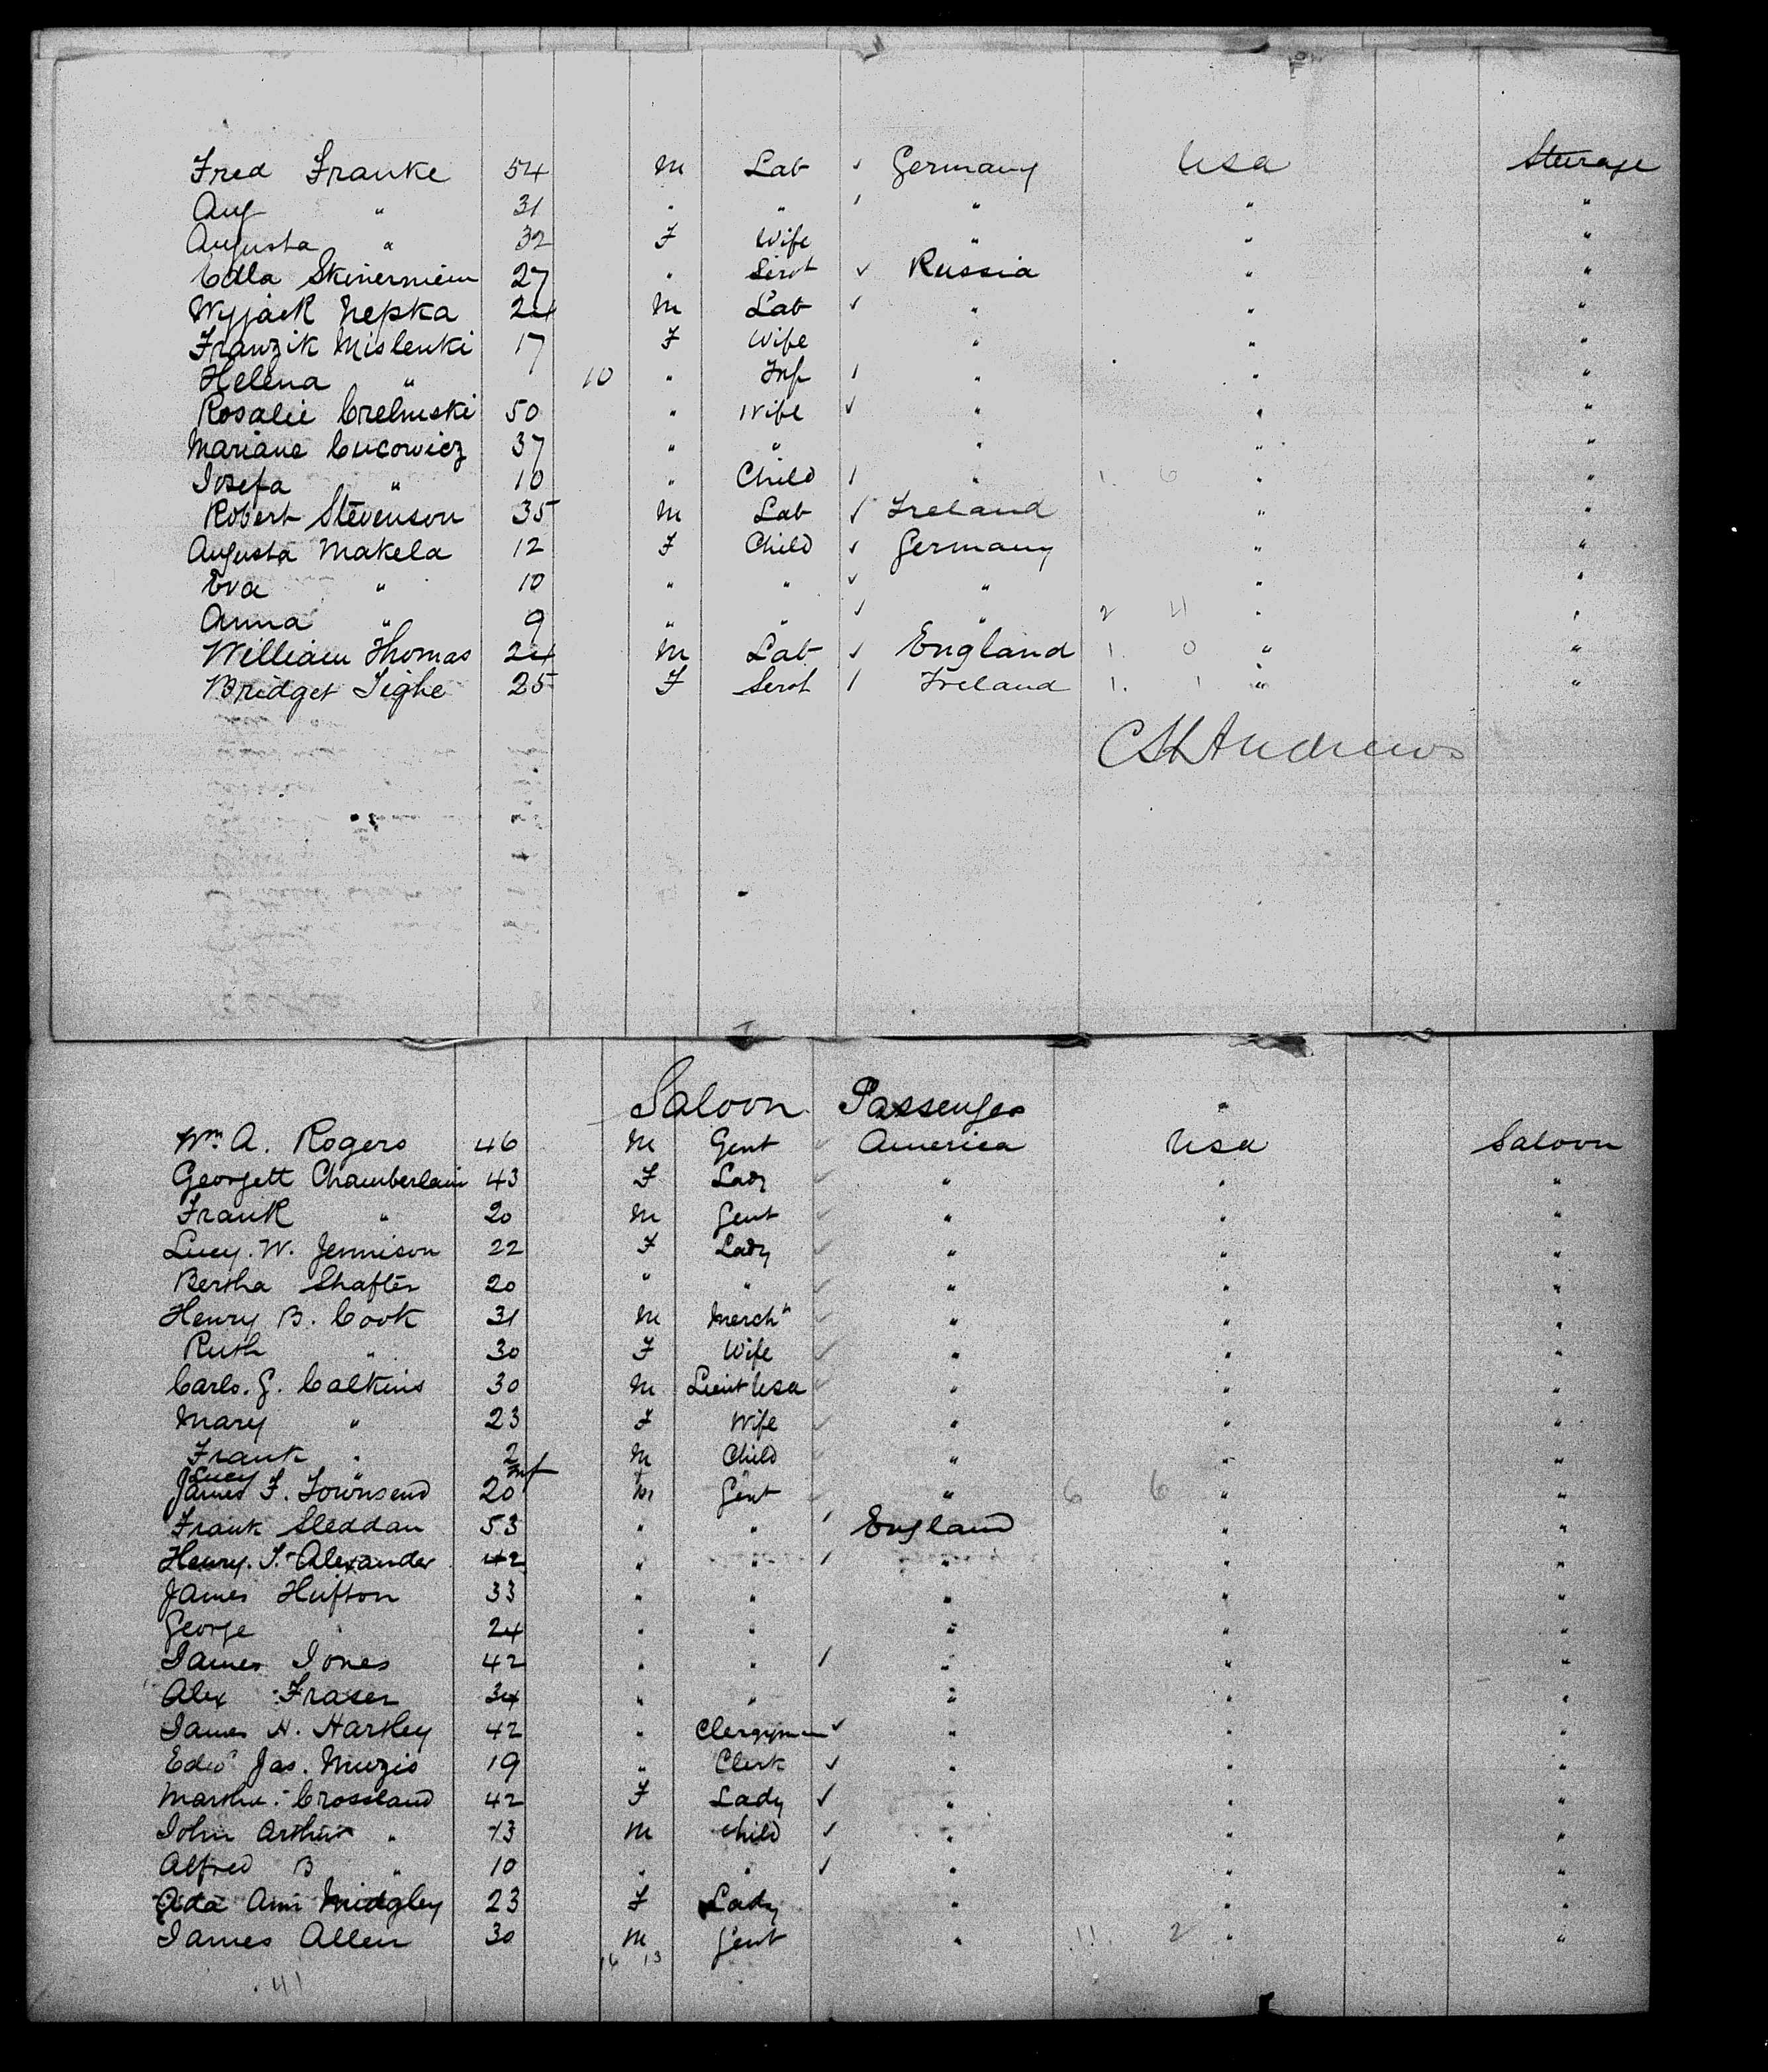 Fred Franke 54 M Lab ✓ Germany Usa Steerage
Aug " 31 " " ✓ " " "
Augusta " 32 F Wife " " "
Edla Skinerniem 27 " Servt ✓ Russia " "
Wyjack Nepka 24 M Lab ✓ " " "
Franzik Mislenki 17 F Wife " " "
Helena " 10 " Inf ✓ " " "
Rosalie 50 " Wife ✓ " " "
Mariane Cucowicz 37 " " " " "
Josefa " 10 " Child ✓ " 1. 6 " "
Robert Stevenson 35 M Lab ✓ Ireland " "
Augusta Makela 12 F Child ✓ Germany " "
Eva " 10 " " ✓ " " "
Anna " 9 " " ✓ " 2 4 " "
William Thomas 24 M Lab ✓ England 1. 0 " "
Bridget Tighe 25 F Servt ✓ Ireland 1. 1 " "
CHAndrews
Saloon Passenges "
Wm A. Rogers 46 M Gent ✓ America Usa Saloon
Georgett Chamberlain 43 F Lady ✓ " " "
Frank " 20 M Gent ✓ " " "
Lucy. W. Jennison 22 F Lady ✓ " " "
Bertha Shafter 20 " " ✓ " " "
Henry B. Cook 31 M Merch" ✓ " " "
Ruth " 30 F Wife ✓ " " "
Carls. G. Calkins 30 M Lieut Usa ✓ " " "
Mary " 23 F Wife ✓ " " "
Frank " 2 M Child ✓ " " "
Lucy " Inf
James F. Townsend 20 M Gent ✓ " 6 6 " "
Frank Sleddan 53 " " ✓ England " "
Henry. T. Alexander 42 " " ✓ " " "
James Hufton 33 " " " " "
George " 24 " " " " "
James Jones 42 " " ✓ " " "
Alex Fraser 34 " " " " "
James H. Hartley 42 " Clergyman ✓ " " "
Edwd Jas. 19 " Clerk ✓ " " "
Martha Crossland 42 F Lady ✓ " " "
John Arthur " 13 M Child ✓ " " "
Alfred B " 10 " " ✓ " " "
Ada Ann Midgley 23 F Lady " " "
James Allen 30 M Gent " 11. 2 " "
16 13
41